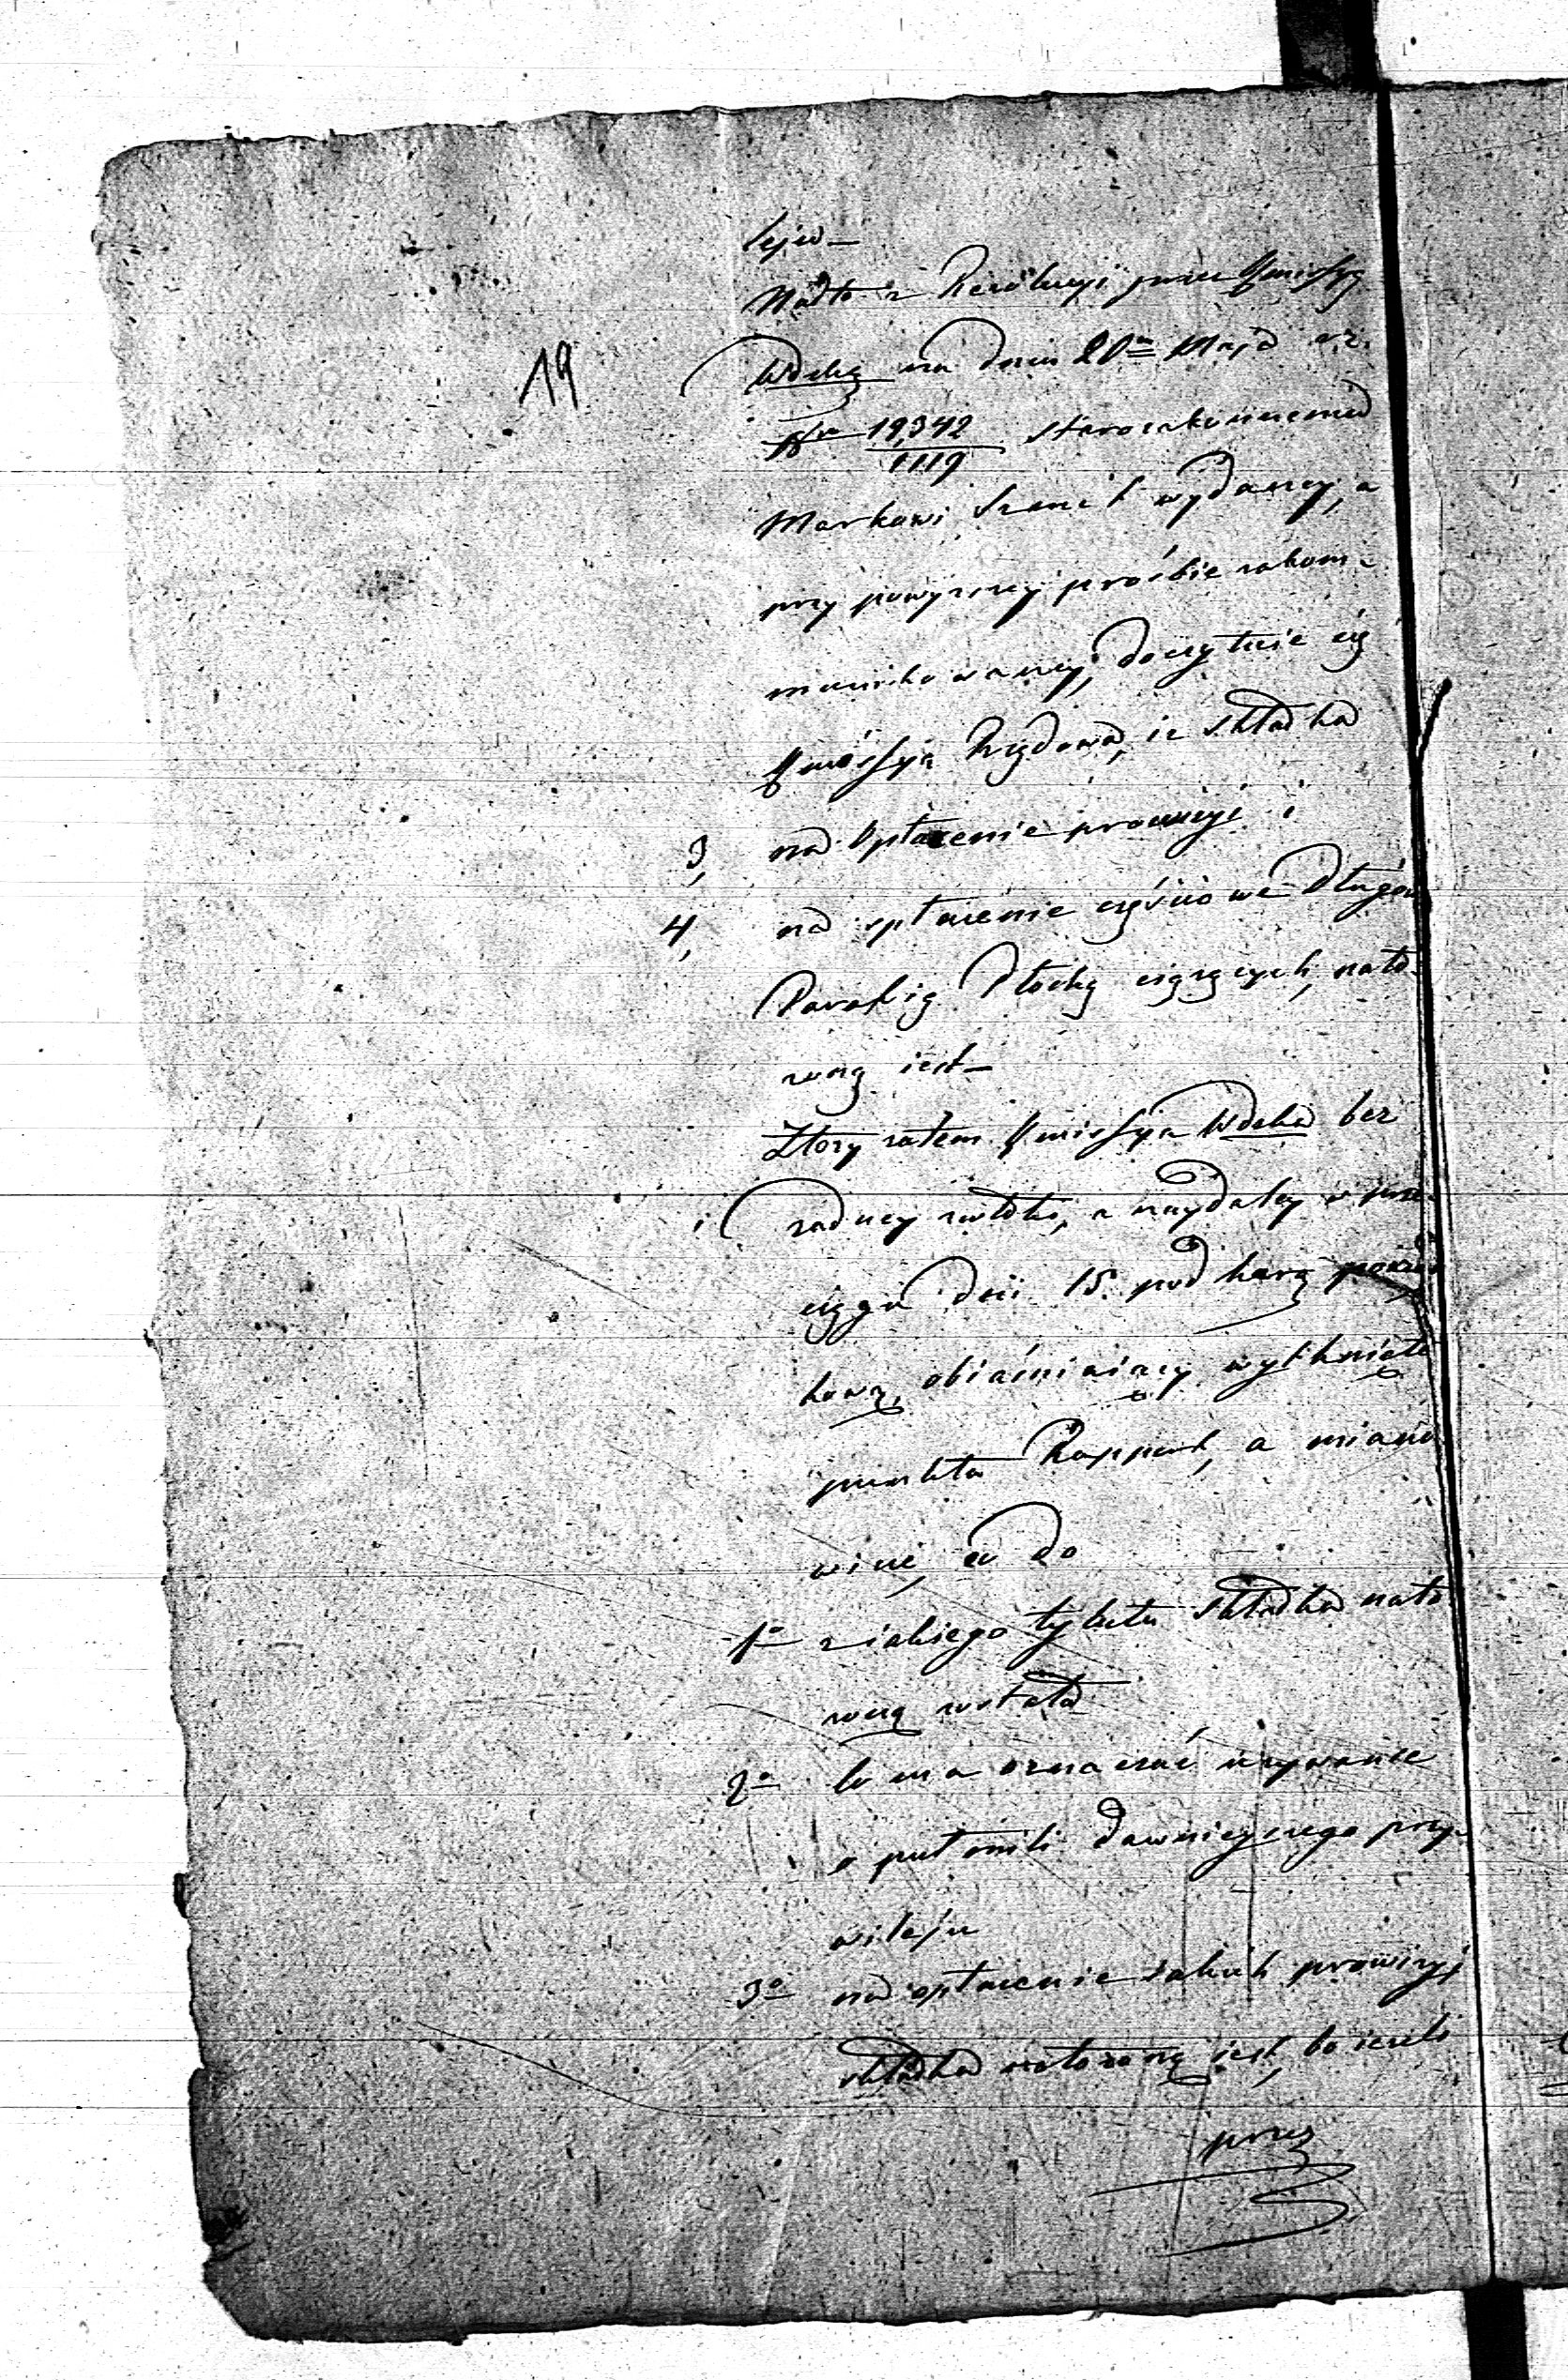 leju —
Nadto z Rezolucyi przez Kmissyą
19
Wdzką na dniu 20m Maja r. z.
Nro 19,342/1119 Starozakonnemu
Markowi wydaney, a
przy powyzszey prośbie zakom-
munikowaney, doczytuie się
Kmissyia Rządowa, iż składka
3, na opłacenie prowizyi i
4, na spłacenie częściowe długów
Parafią Płocką ciążących, nało-
żoną iest —
Złoży zatem Kmissyia Wdzka bez
żadney zwłoki, a naydaley w prze-
ciągu dni 15. pod karą
obiaśniaiący wytknięte
punkta Rapport, a miano
wicie, co do
1o z iakiego tytułu składka nało
żoną została
2o Co ma oznaczać używanie
dawnieyszego przy-
wileju
3o na opłacenie iakich prowizyi
składka nałożoną iest, bo ieżeli
przez